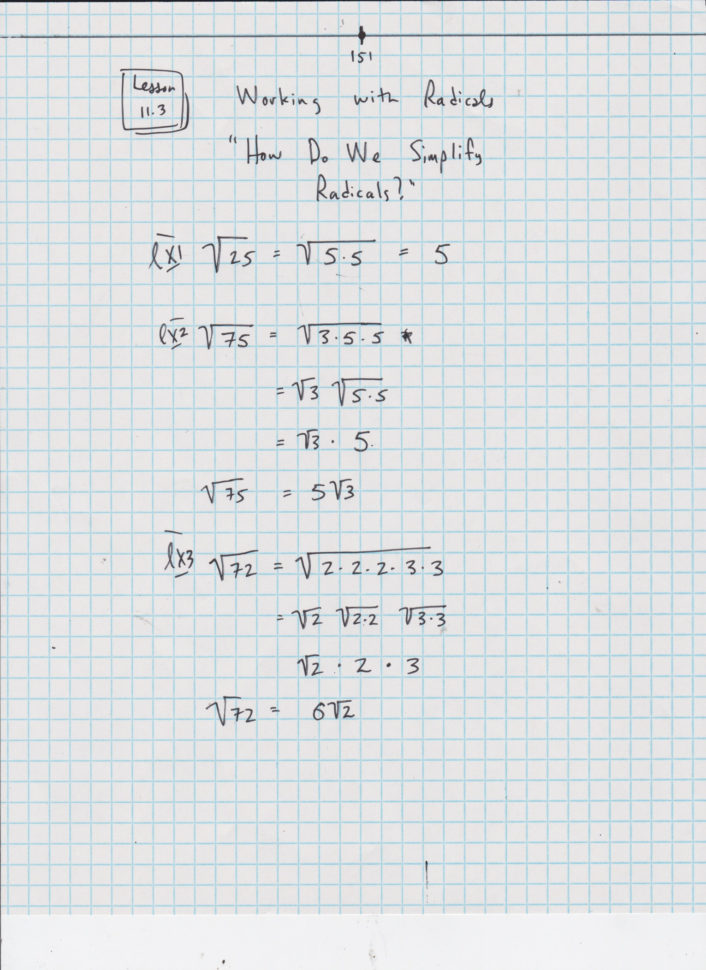 151
Lesson
11.3
Working with Radicals
"How Do We Simplify
Radicals?"
ex1 √25 = √5·5 = 5
ex2 √75 = √3·5·5 *
= √3 √5·5
= √3 · 5
√75 = 5√3
ex3 √72 = √2·2·2·3·3
= √2 √2·2 √3·3
√2 · 2 · 3
√72 = 6√2